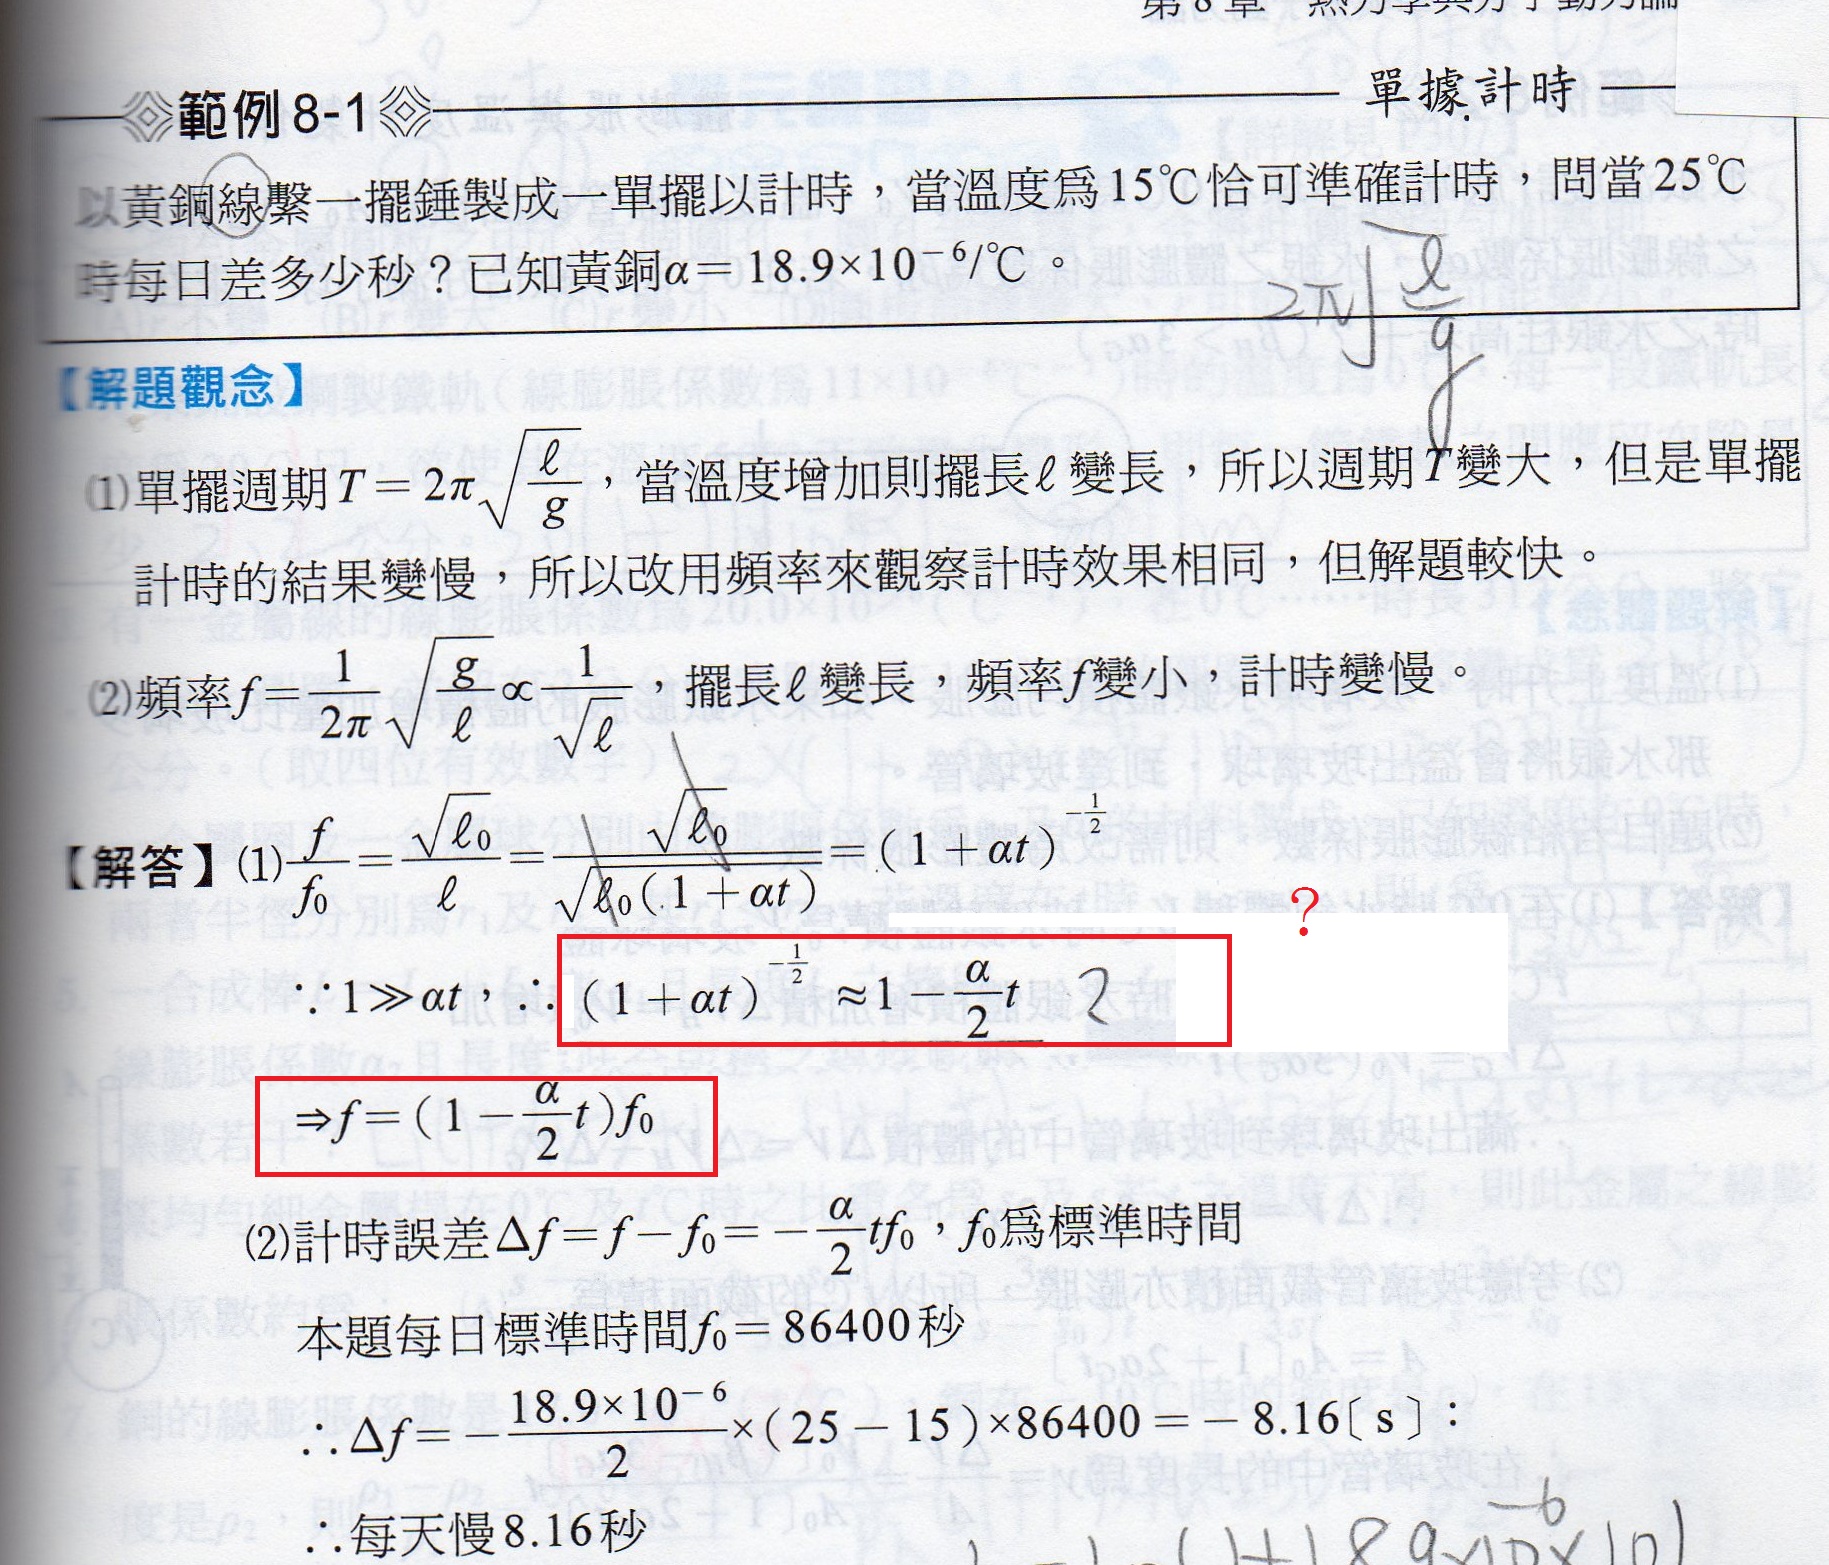 第8章 熱力學與分子動力論
範例8-1
單據計時
以黃銅線繫一擺錘製成一單擺以計時,當溫度為15℃恰可準確計時,問當25℃
時每日差多少秒?已知黃銅α=18.9×10⁻⁶/℃。
2π√(ℓ/g)
【解題觀念】
⑴單擺週期T=2π√(ℓ/g),當溫度增加則擺長ℓ變長,所以週期T變大,但是單擺
計時的結果變慢,所以改用頻率來觀察計時效果相同,但解題較快。
⑵頻率f=1/2π √(g/ℓ)∝1/√ℓ,擺長ℓ變長,頻率f變小,計時變慢。
【解答】⑴f/f₀=√ℓ₀/ℓ=√ℓ₀/√ℓ₀(1+αt)=(1+αt)^(-1/2)
?
∵1≫αt,∴(1+αt)^(-1/2)≈1-α/2 t 2
⇒f=(1-α/2 t)f₀
⑵計時誤差Δf=f-f₀=-α/2 tf₀,f₀為標準時間
本題每日標準時間f₀=86400秒
∴Δf=-18.9×10⁻⁶/2×(25-15)×86400=-8.16〔s〕:
∴每天慢8.16秒